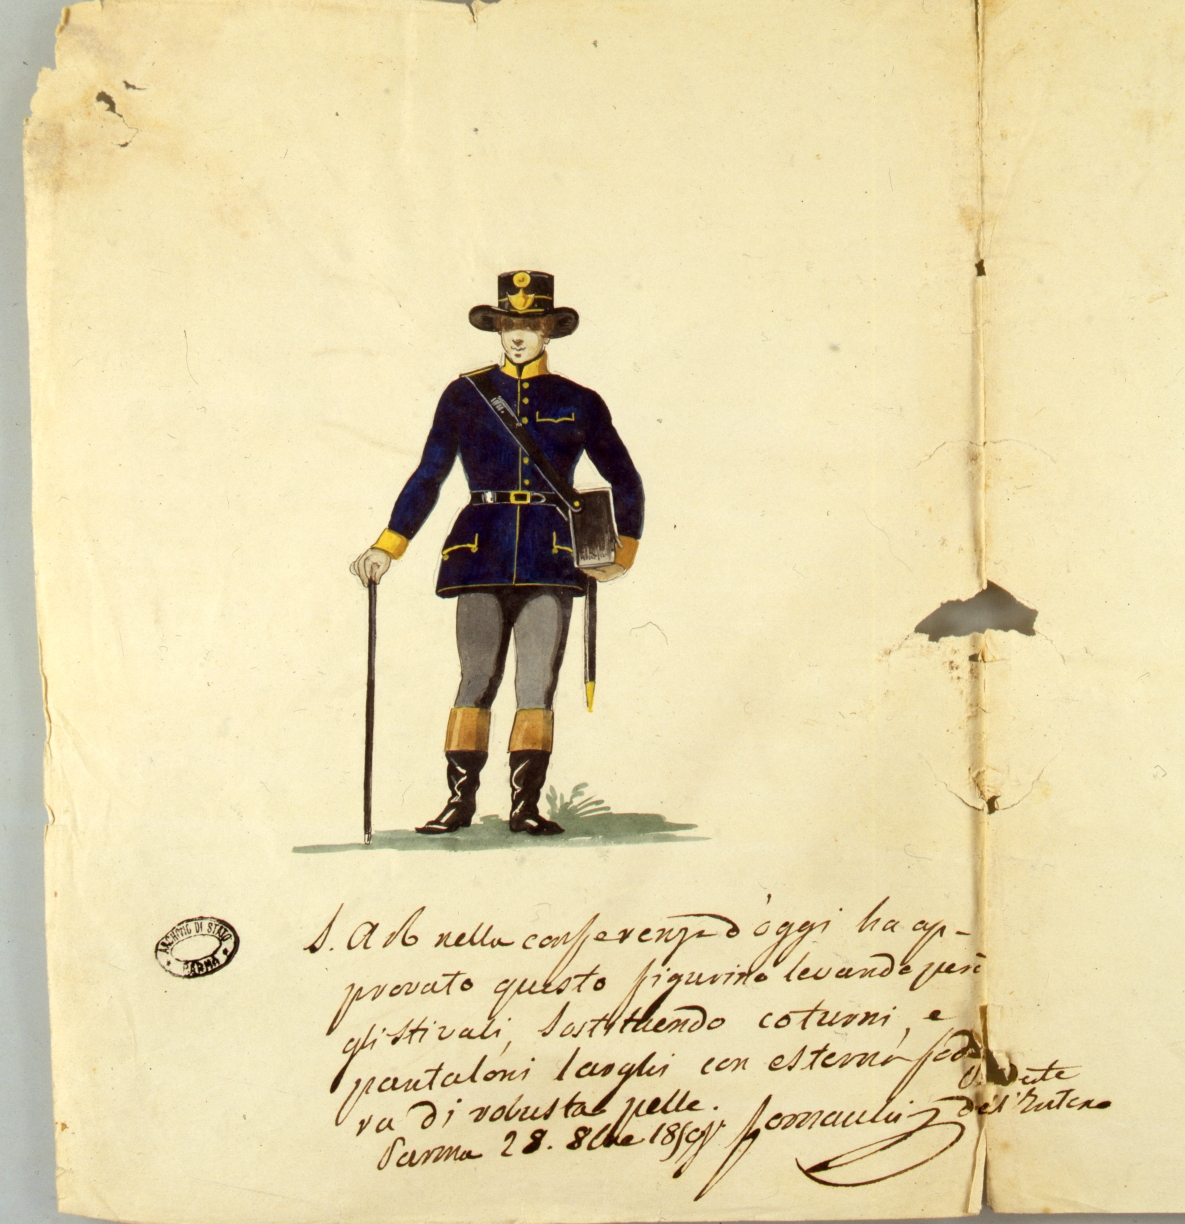 ARCHIVIO DI STATO
PARMA
S. A R nella conferenza d'oggi ha ap-
provato questo figurino levando però
gli stivali, sostituendo coturni, e
pantaloni larghi con esterna fode
ra di robusta pelle.
Parma 28. 8bre
dell'Interno